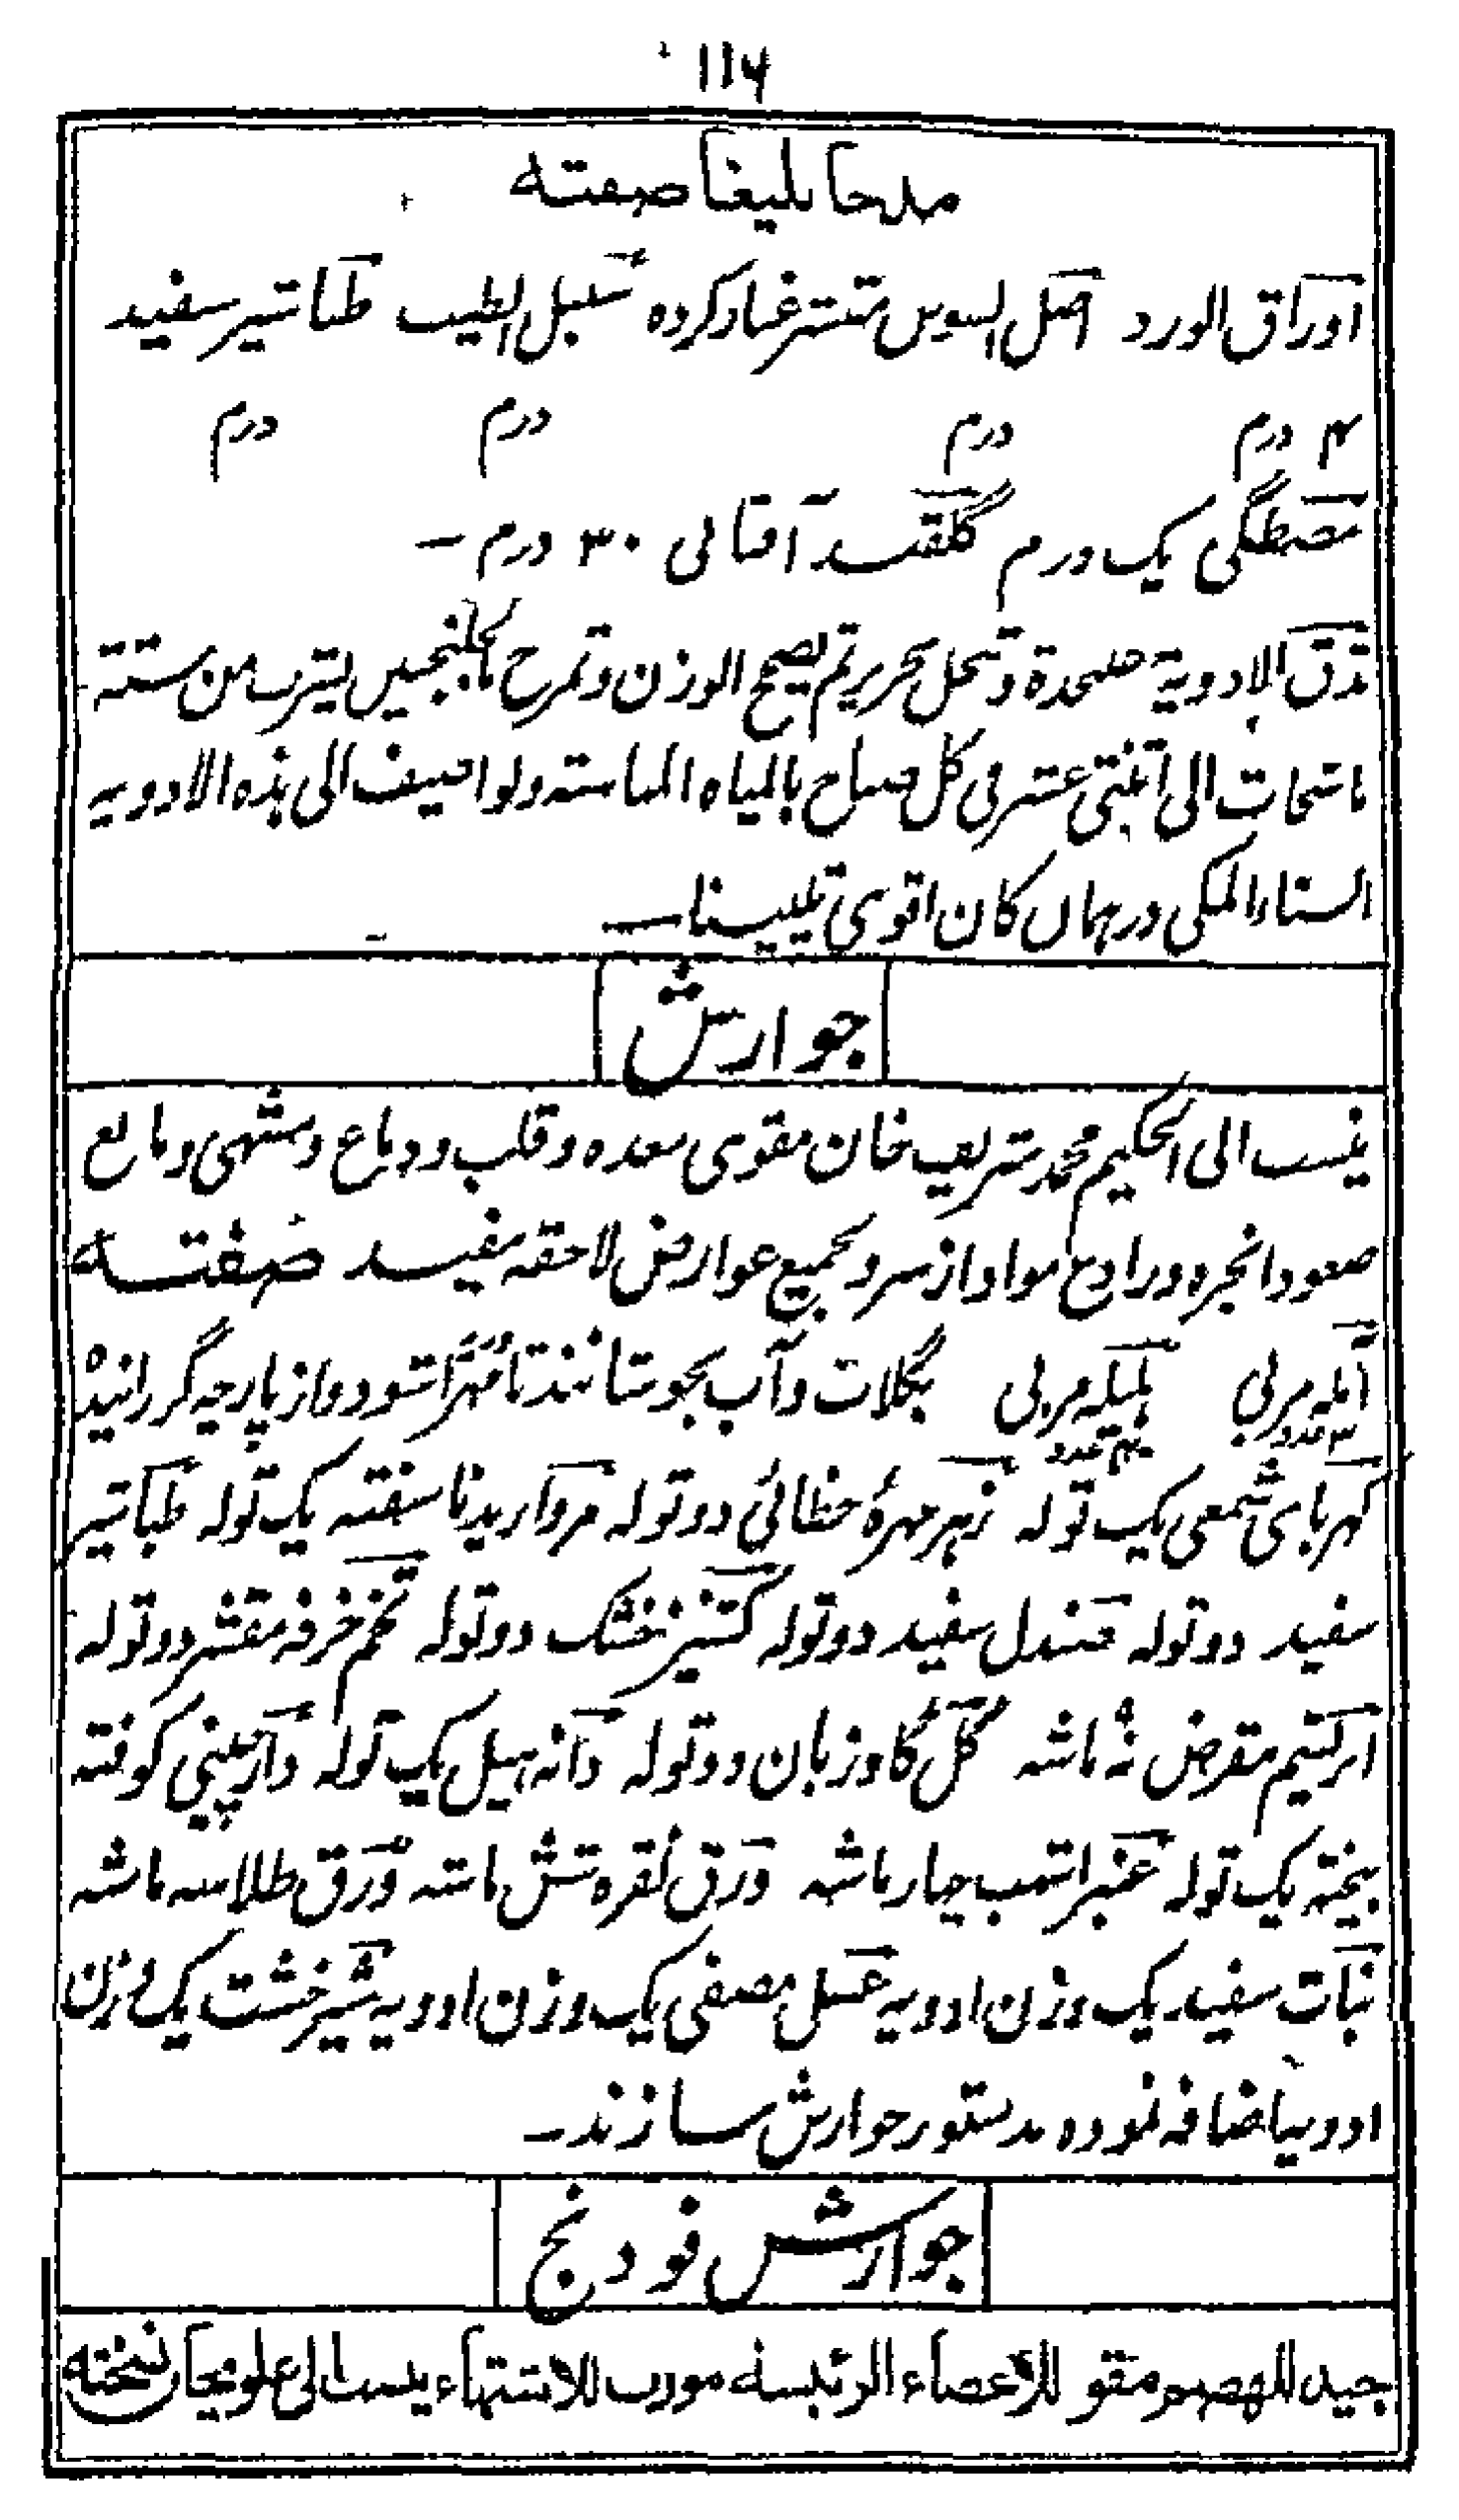 ۱۱۶
صفته
اوراق الورد اصل السوس مقشر غبار کرده سنبل الطیب طباشیر سفید
۴ درم درم درم درم
مصطگی یک درم گلقند آفتابی ۳۰ درم ـ
تدق الادویه علیحدة و تنخل بحریر ثم یصحح الوزن و تمزج بالجلنجبین یشرب من ستة
ماشجات الی اثنتی عشر فی کل صباح بالمیاه المناسبه ولو اضیف الی هذه الادویه
السناء المکی درهمان کان اقوی تلیینا ـ
جوارش
ینسب الی الحکیم محمد شریف خان مقوی معده و قلب و دماغ و مشهی و مانع
صعود انجره و رادع مواد از سر و بجمیع عوارض لاحقه مفید صفته
آمله مربی هلیله مربی بگلاب و آب بجوشانند تا مهرا شود و از پارچه گذرانیده
۳ عدد عدد
کهربای شمعی یک توله زهر مهرۀ خطائی دو توله مروارید ناسفته یک توله طباشیر
سفید دو توله صندل سفید دو توله کشنیز خشک دو توله تخم خرفه مقشر دو توله
ابریشم مقرض نه ماشه گل گاوزبان دو توله دانه هیل یک توله دارچینی کوفته
بیخته یک توله عنبر اشهب چار ماشه ورق نقره شش ماشه ورق طلا سه ماشه
نبات سفید یک وزن ادویه عسل مصفی یک وزن ادویه شیر خشت یک وزن
ادویه اضافه نموده بدستور جوارش سازند ـ
جوارش فودنج
جید للهضم مقو للاعضاء الرئیسه مورث للاشتهاء ینسب الی نسخته